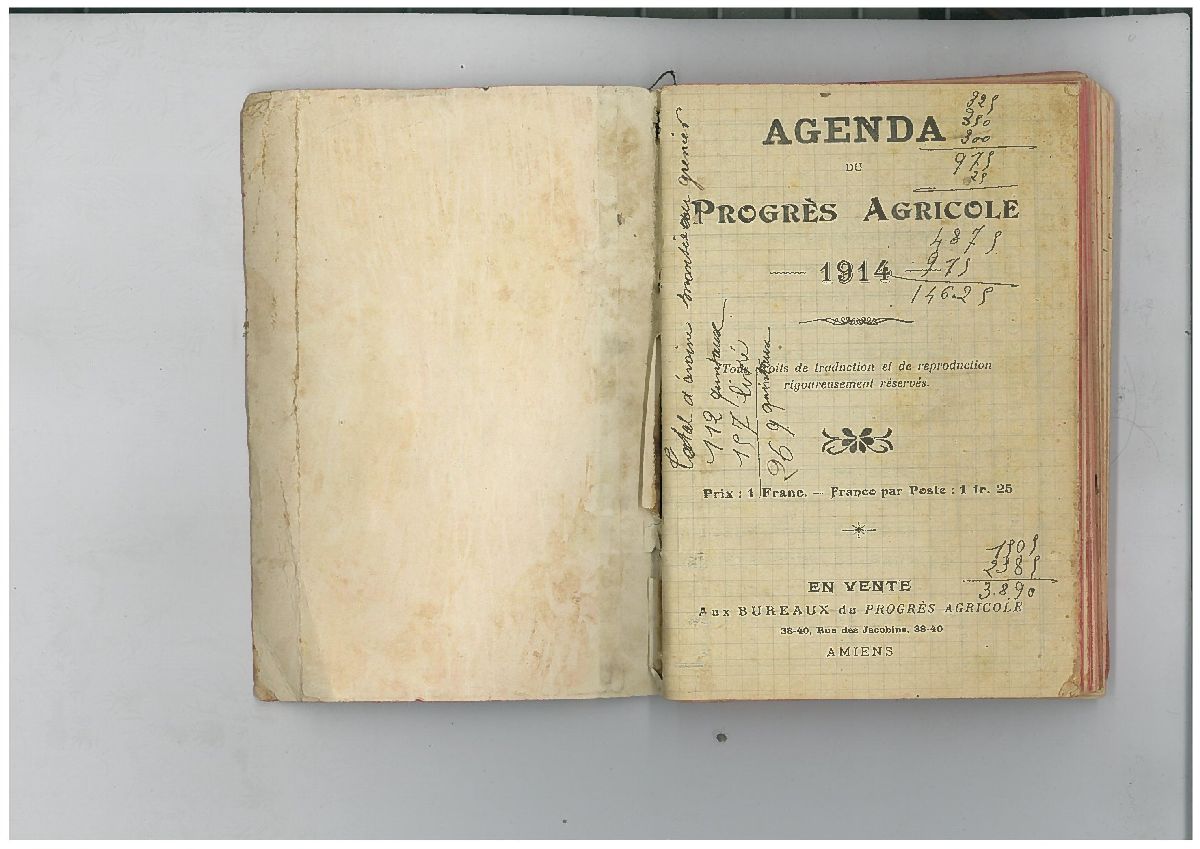 AGENDA
DU
PROGRÈS AGRICOLE
1914
Tous droits de traduction et de reproduction
rigoureusement réservés.
Prix : 1 Franc. — Franco par Poste : 1 fr. 25
EN VENTE
Aux BUREAUX du PROGRÈS AGRICOLE
38-40, Rue des Jacobins, 38-40
AMIENS
325
350
300
975
25
4875
975
14625
1505
2385
3.890
Total d'avoine au grenier
112 quintaux
157 livré
269 quintaux